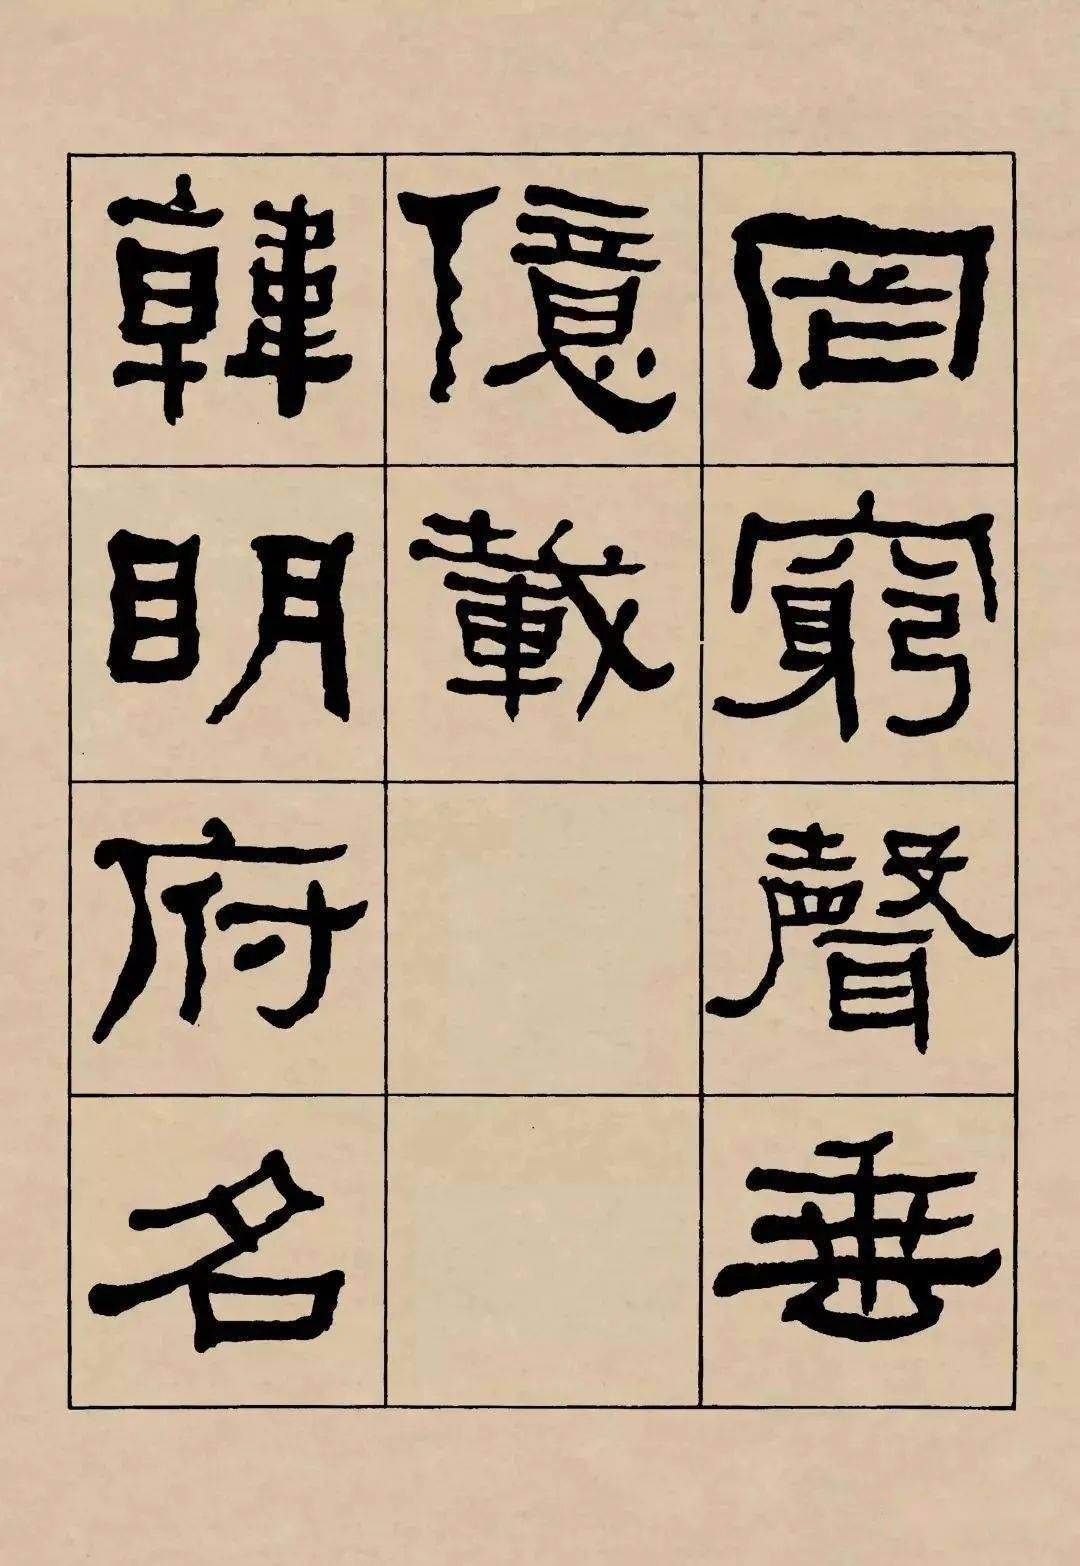 罔窮聲垂
億載
韓明府名